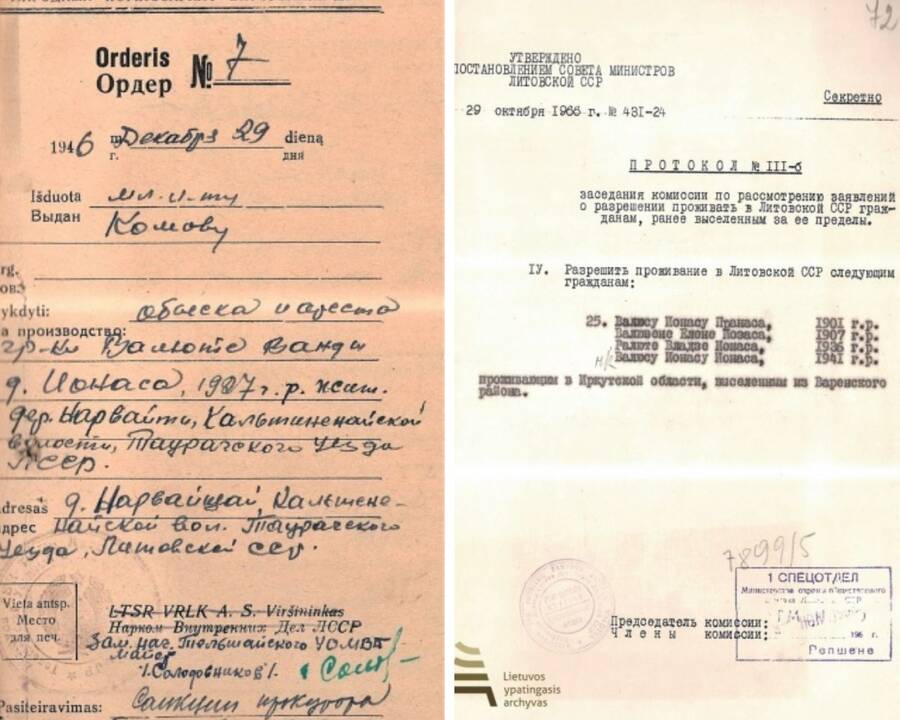 Orderis
Ордер № 7
1946 m. Декабря 29 dieną
г. дня
Išduota мл. л-ту
Выдан Комову
ykdyti: обыска и ареста
а производство:
гр-ки Валюте Ванды
д. Ионаса, 1927 г.р. жит.
дер. Нарвайти, Кальтиненайской
волости, Таурагского Уезда
ЛССР.
dresas д. Нарвайщай, Кальтене-
дрес найской вол. Таурагского
Уезда, Литовской сср.
Vieta antsp.
Место
для печ.
LTSR VRLK A. S. Viršininkas
Нарком Внутренних Дел ЛССР
Зам. нач. Тельшайского УОМВД
майор
/Солодовников/.
Pasiteiravimas: Санкция прокурора
72
УТВЕРЖДЕНО
ПОСТАНОВЛЕНИЕМ СОВЕТА МИНИСТРОВ
ЛИТОВСКОЙ ССР
Секретно
29 октября 1966 г. № 431-24
ПРОТОКОЛ № III-б
заседания комиссии по рассмотрению заявлений
о разрешении проживать в Литовской ССР граж-
данам, ранее выселенным за ее пределы.
IУ. Разрешить проживание в Литовской ССР следующим
гражданам:
25. Валюсу Ионасу Пранаса, 1901 г.р.
Валювене Елене Юозаса, 1907 г.р.
Ралюте Владзе Ионаса, 1936 г.р.
н/к Валюсу Ионасу Ионаса, 1941 г.р.
проживающим в Иркутской области, выселенным из Варенского
района.
7899/5
1 СПЕЦОТДЕЛ
Министерства охраны общественного
Председатель комиссии:
Члены комиссии:
196 г.
Репшене
Lietuvos
ypatingasis
archyvas